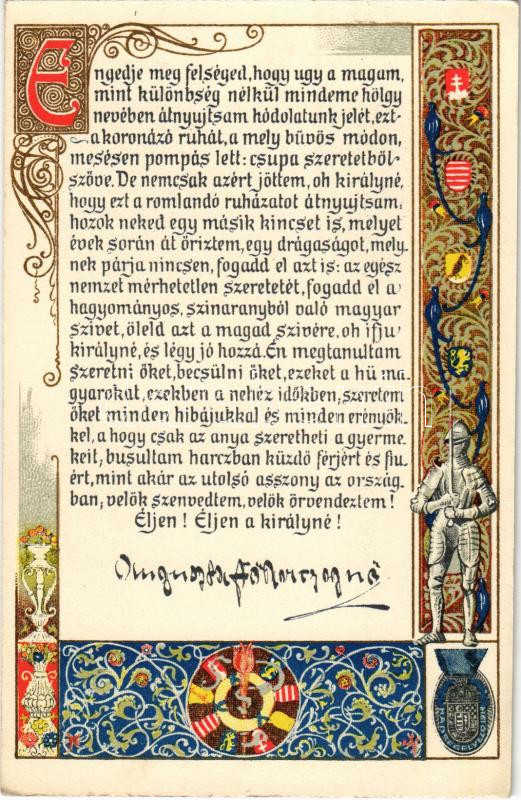 Engedje meg felséged, hogy ugy a magam,
mint különbség nélkül mindeme hölgy
nevében átnyujtsam hódolatunk jelét, ezt
a koronázó ruhát, a mely büvös módon,
mesésen pompás lett: csupa szeretetböl
szöve. De nemcsak azért jöttem, oh királyné,
hogy ezt a romlandó ruházatot átnyujtsam;
hozok neked egy másik kincset is, melyet
évek során át őriztem, egy drágaságot, mely-
nek párja nincsen, fogadd el azt is: az egész
nemzet mérhetetlen szeretetét, fogadd el a
hagyományos, szinaranyból való magyar
szivet, öleld azt a magad szivére, oh ifju
királyné, és légy jó hozzá. Én megtanultam
szeretni őket, becsülni őket, ezeket a hü ma-
gyarokat, ezekben a nehéz időkben; szeretem
őket minden hibájukkal és minden erényök-
kel, a hogy csak az anya szeretheti a gyerme-
keit; busultam harczban küzdő férjért és fiu-
ért, mint akár az utolsó asszony az ország-
ban; velök szenvedtem, velök örvendeztem!
Éljen! Éljen a királyné!
Auguszta Főherczegnő
HADSEGÉLYZŐ 1914